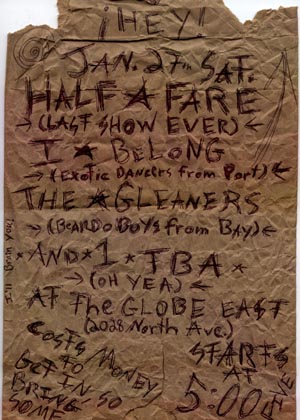 ¡HEY!
JAN. 27th SAT.
HALF ★ FARE
→ (LAST SHOW EVER) ←
I ★ BELONG
→ (EXOTIC DANCERS from Port) ←
THE ★ GLEANERS
→ (BEARDO BOYS from BAY) ←
★ AND ★ 1 ★ TBA ★
→ (OH YEA) ←
AT The GLOBE EAST
(2028 North Ave.)
COSTS MONEY
GET TO IN SO
BRING SOME
STARTS
AT
5:00